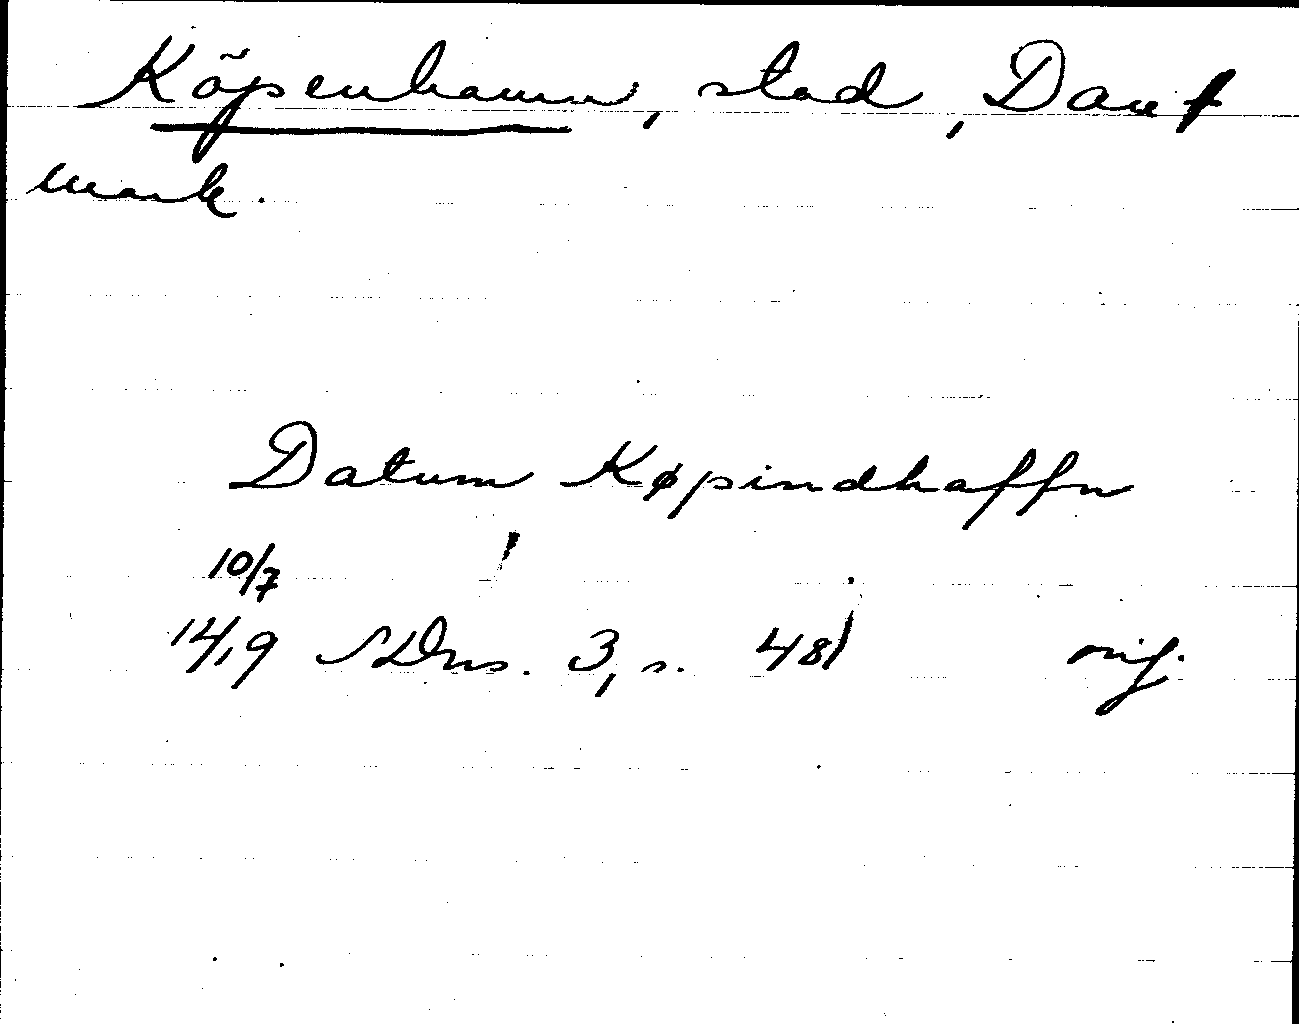 Köpenhamn, stad, Dan-
mark.
Datum Køpindhaffn
10/7
1419 SDns. 3, s. 481 orig.